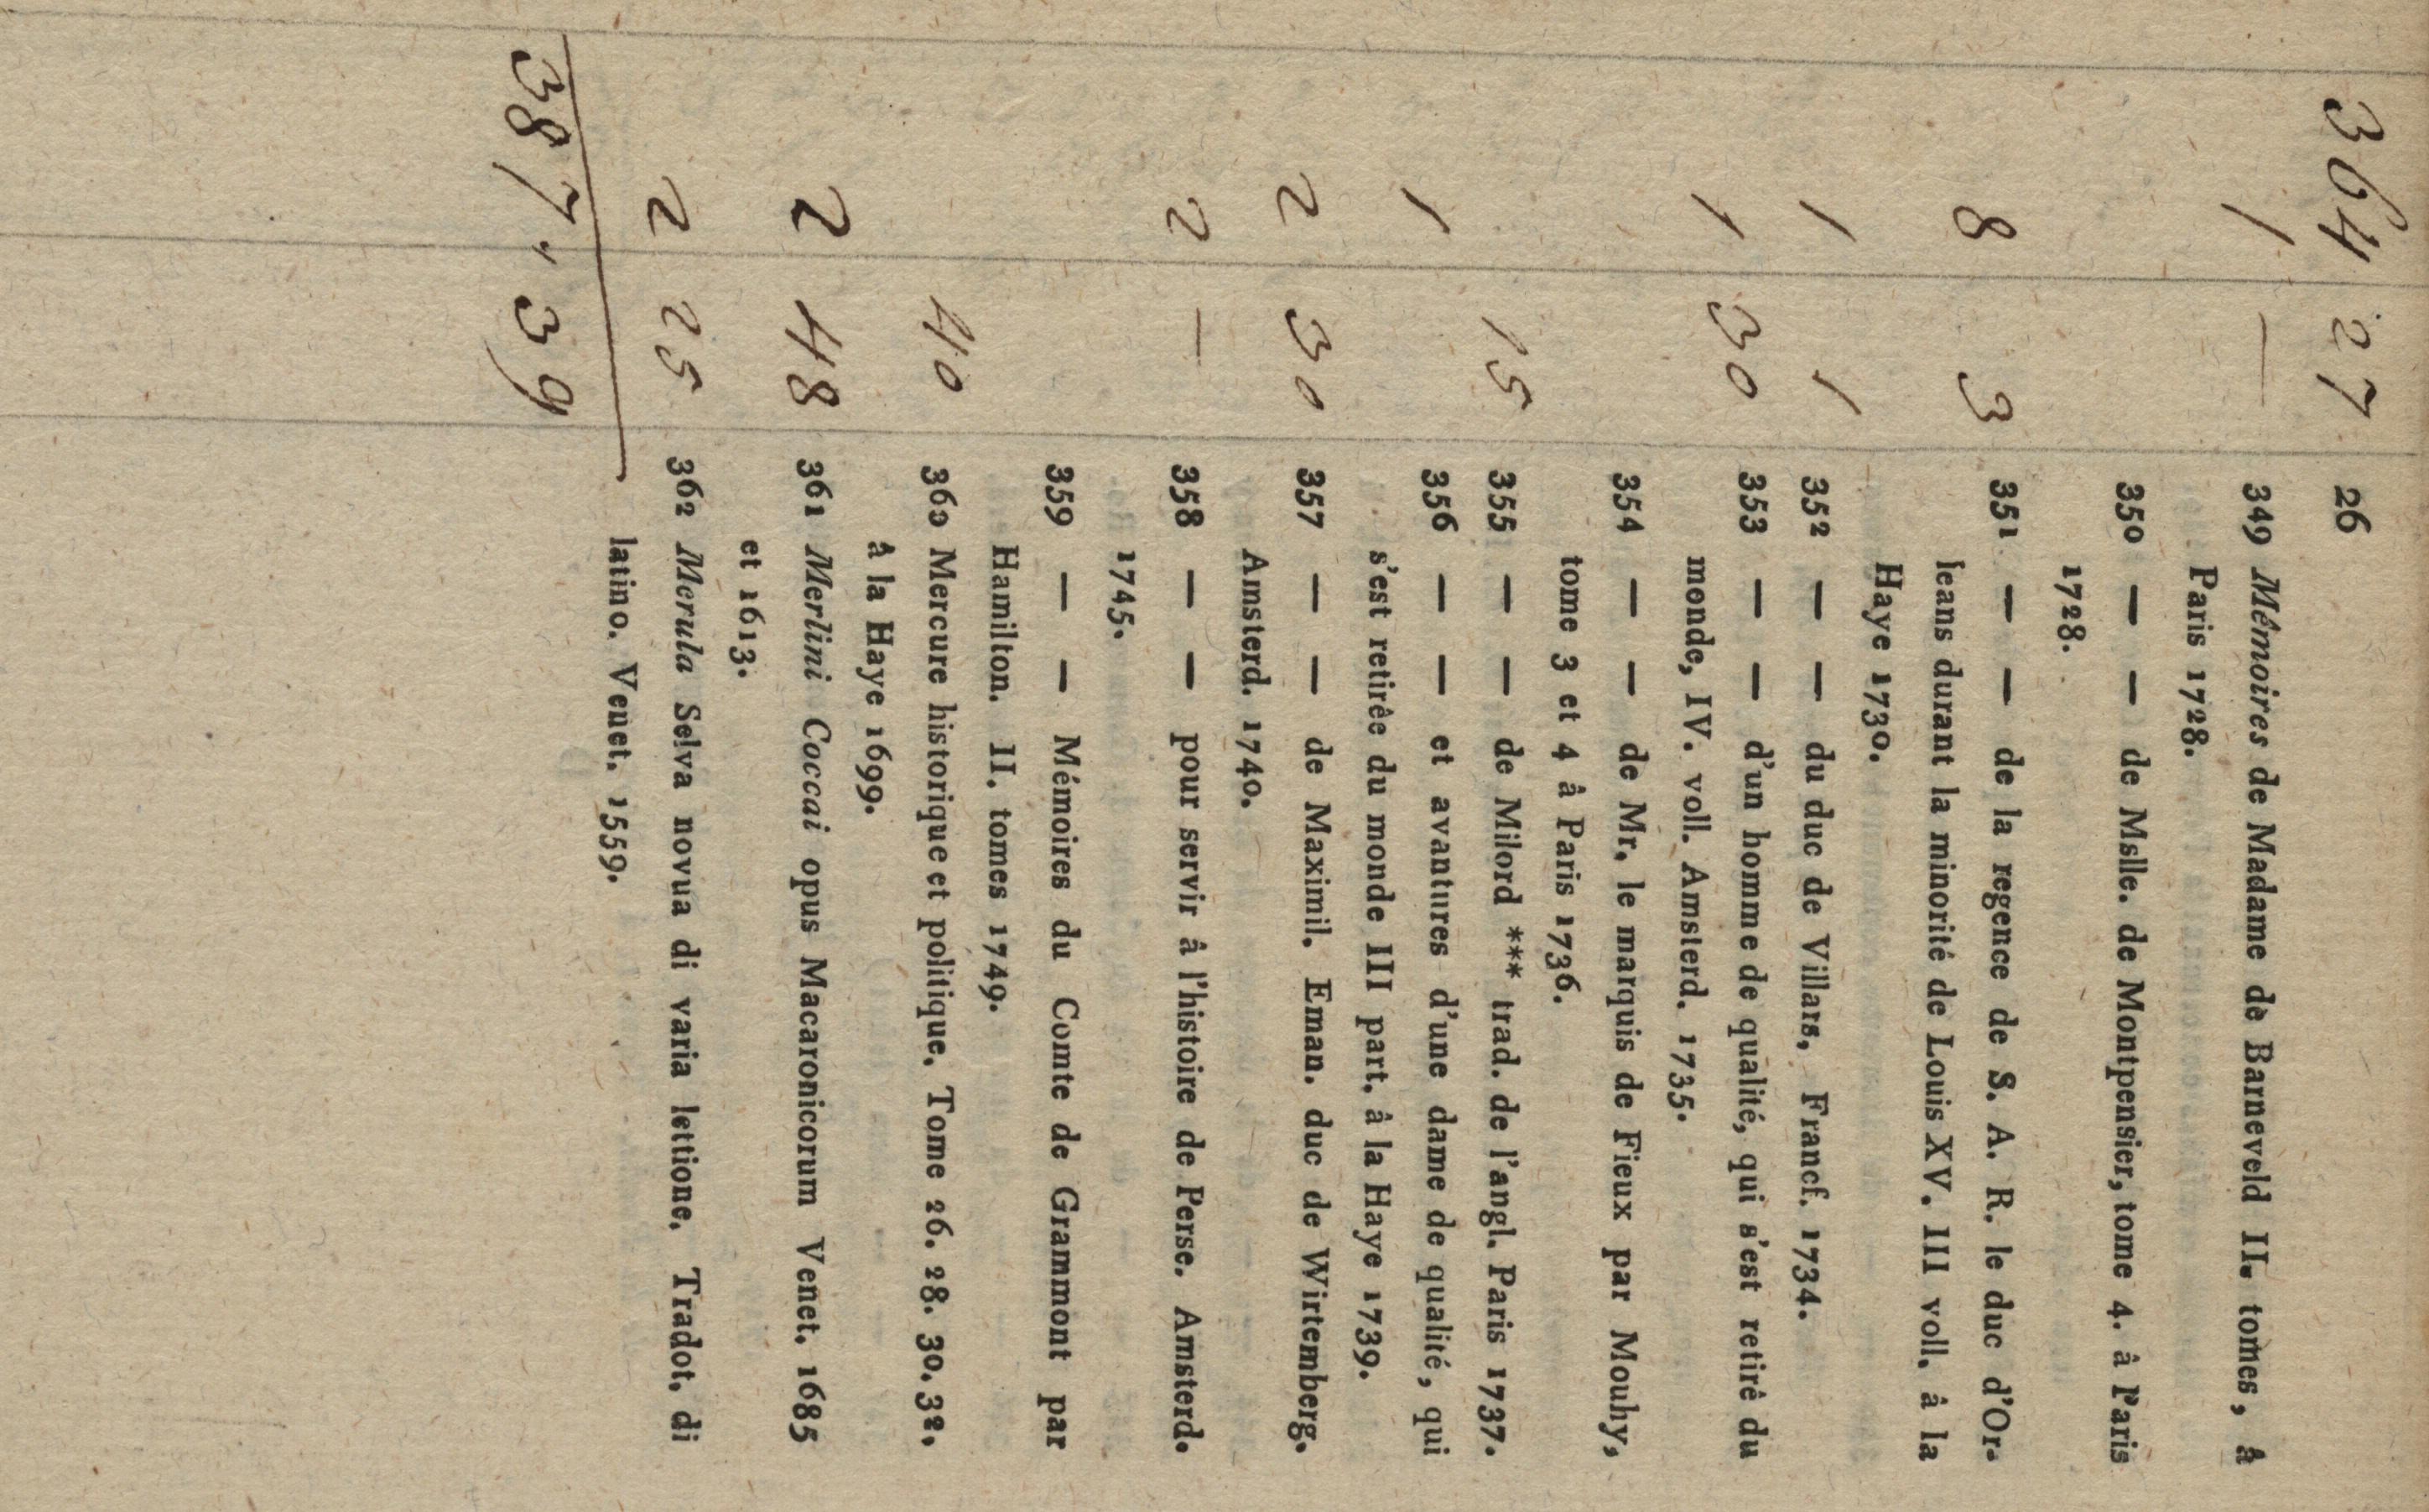 364 27 26
1 — 349 Mêmoires de Madame de Barneveld II. tomes, â
Paris 1728.
350 — — de Mslle. de Montpensier, tome 4. â Paris
1728.
8 3 351 — — de la regence de S. A. R. le duc d'Or-
leans durant la minorité de Louis XV. III voll. â la
Haye 1730.
1 1 352 — — du duc de Villars, Francf. 1734.
1 30 353 — — d'un homme de qualité, qui s'est retirê du
monde, IV. voll. Amsterd. 1735.
354 — — de Mr. le marquis de Fieux par Mouhy,
tome 3 et 4 â Paris 1736.
15 355 — — de Milord *** trad. de l'angl. Paris 1737.
1 356 — — et avantures d'une dame de qualité, qui
s'est retirêe du monde III part. â la Haye 1739.
2 30 357 — — de Maximil. Eman. duc de Wirtemberg.
Amsterd. 1740.
2 — 358 — — pour servir â l'histoire de Perse. Amsterd.
1745.
359 — — Mémoires du Comte de Grammont par
Hamilton. II. tomes 1749.
40 360 Mercure historique et politique. Tome 26. 28. 30. 32.
â la Haye 1699.
2 48 361 Merlini Coccai opus Macaronicorum Venet. 1685
et 1613.
2 25 362 Merula Selva novua di varia lettione. Tradot. di
latino. Venet. 1559.
387 " 39